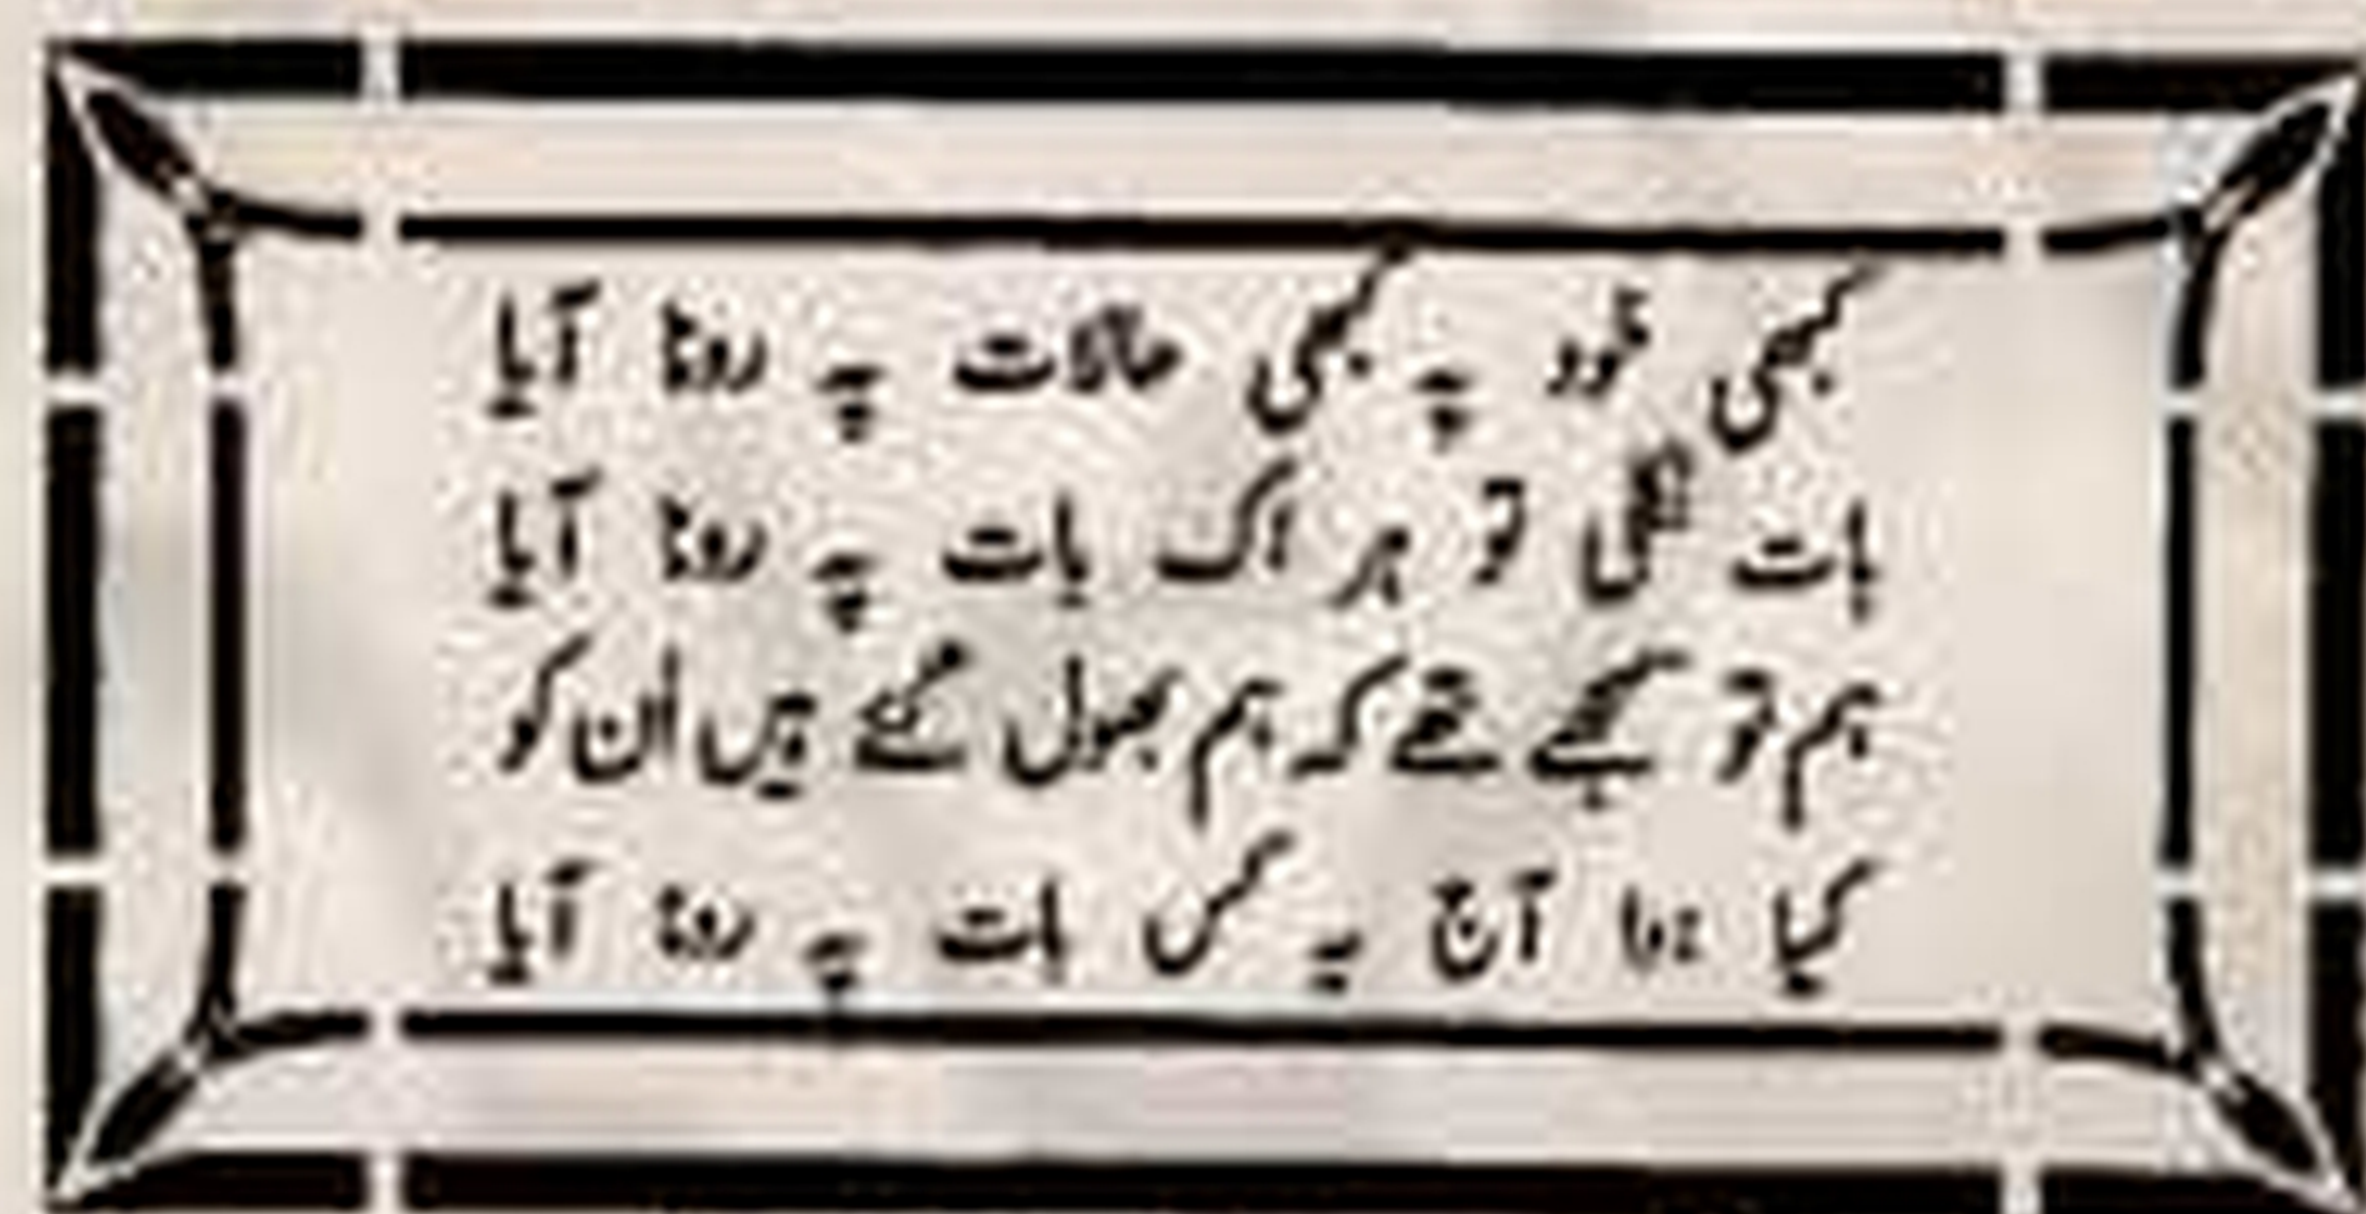 کبھی خود پہ کبھی حالات پہ رونا آیا
بات نکلی تو ہر اک بات پہ رونا آیا
ہم تو سمجھے تھے کہ ہم بھول گئے ہیں اُن کو
کیا ہوا آج یہ کس بات پہ رونا آیا